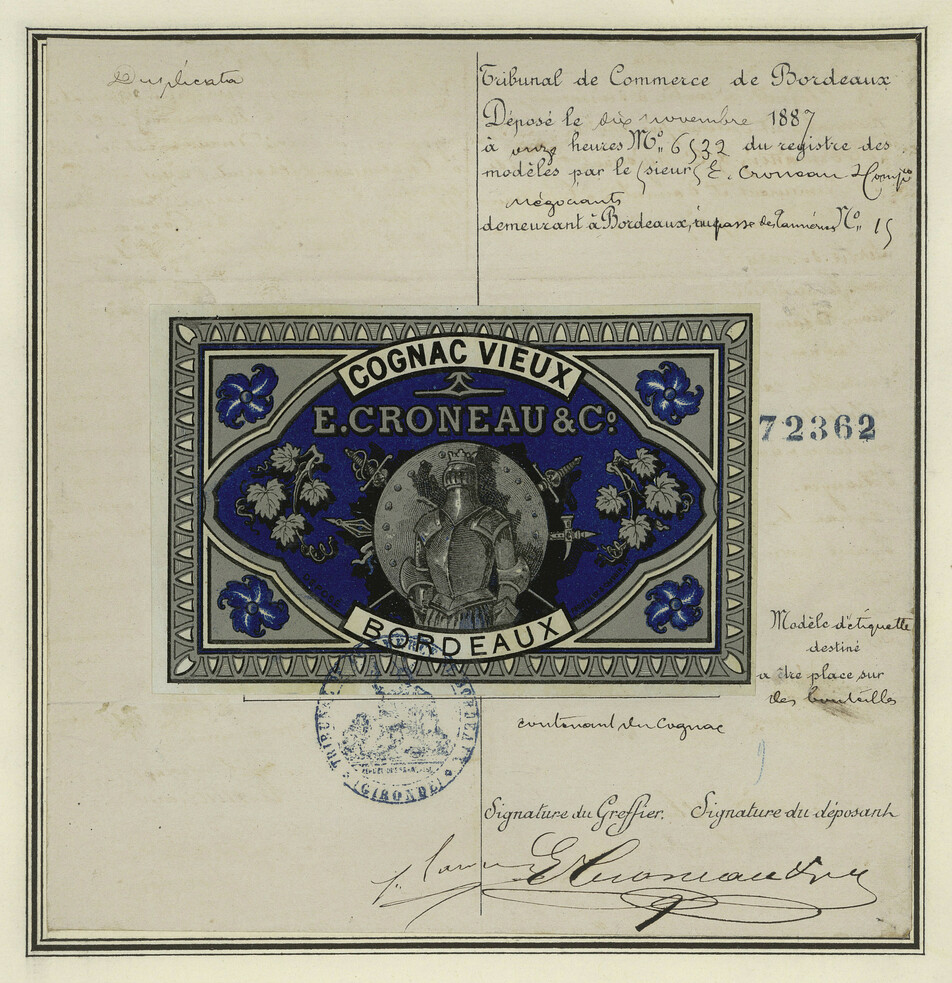 Duplicata
Tribunal de Commerce de Bordeaux
Déposé le dix novembre 1887
à onze heures No. 6532 du registre des
modèles par le sieur E. Croneau & Compie
négociants
demeurant à Bordeaux, impasse des Tanneries No. 15
COGNAC VIEUX
E. CRONEAU & Co.
BORDEAUX
72362
Modèle d'étiquette
destiné
a être place sur
des bouteilles
contenant du Cognac
TRIBUNAL DE COMMERCE DE BORDEAUX
(GIRONDE)
9
Signature du Greffier. Signature du déposant
E Croneau & Cie